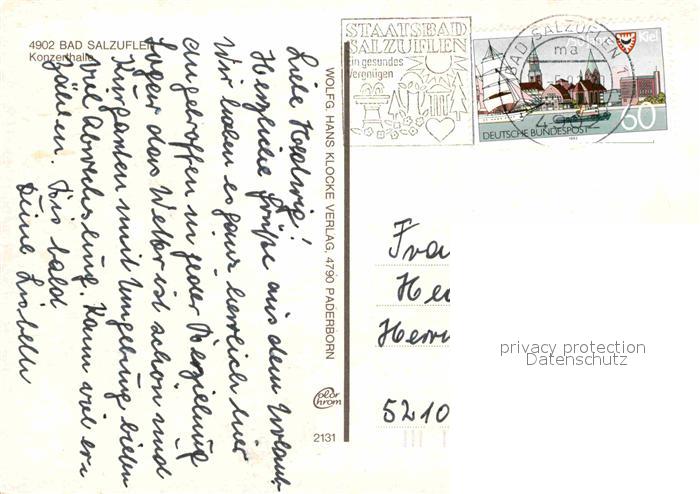 4902 BAD SALZUFLEN
Konzerthalle
Liebe Hedwig!
Herzliche Grüße aus dem Urlaub
Wir haben es ganz herrlich hier
angetroffen in jeder Beziehung
Sogar das Wetter ist schön und
Kurgarten mit Umgebung bieten
viel Abwechslung. Kann viel er-
zählen. Bis bald
Deine Liesbeth
WOLFG. HANS KLOCKE VERLAG, 4790 PADERBORN
Color
Chrom
2131
STAATSBAD
SALZUFLEN
Ein gesundes
Vergnügen
BAD SALZUFLEN 1
ma
4902
Kiel
DEUTSCHE BUNDESPOST
60
Frau
He
Herr
5210
privacy protection
Datenschutz